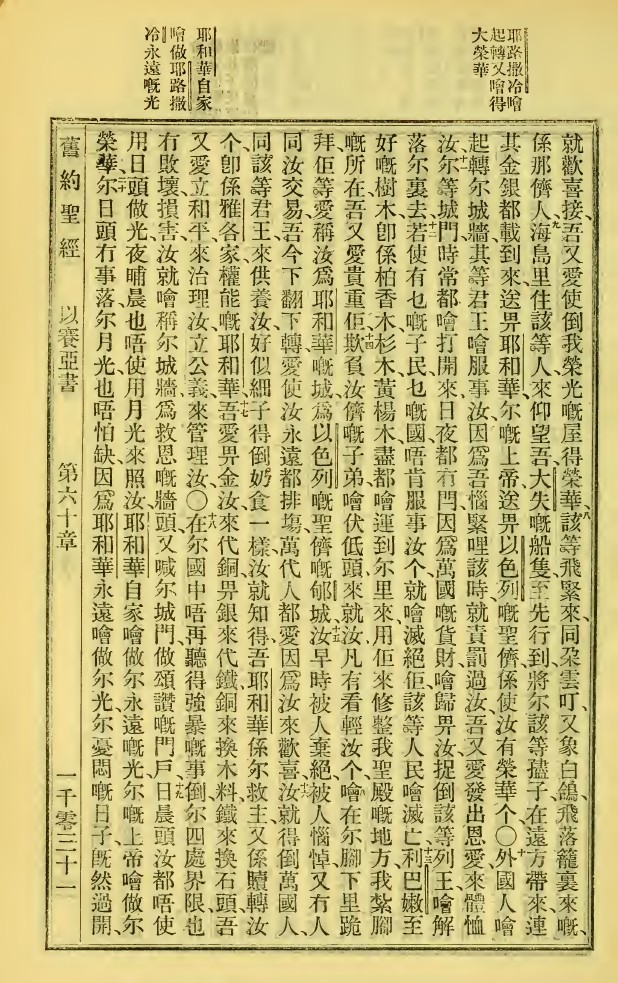 耶路撒冷噲
起轉又噲得
大榮華
耶和華自家
噲做耶路撒
冷永遠嘅光
就歡喜接、吾又愛使倒我榮光嘅屋得榮華、八該等飛緊來、同朶雲吖、又象白鴿、飛落籠裏來嘅、
係那儕人、九海島里住該等人來仰望吾、大失嘅船隻、至先行到、將尔該等孻子、在遠方帶來、連
其金銀都載到來、送畀耶和華、尔嘅上帝、送畀以色列嘅聖儕、係使汝有榮華个〇十外國人噲
起轉尔城牆、其等君王噲服事汝、因爲吾惱緊哩該時就責罰過汝、吾又愛發出恩愛來體恤
汝、十一尔等城門時常都噲打開來、日夜都冇閂、因爲萬國嘅貨財噲歸畀汝、捉倒該等列王噲解
落尔裏去、十二若使有乜嘅子民、乜嘅國、唔肯服事汝个、就噲滅絕佢、該等人民噲滅亡、十三利巴嫩至
好嘅樹木、卽係柏香木、杉木、黃楊木、盡都噲運到尔里來、用佢來修整我聖殿嘅地方、我紮腳
嘅所在、吾又愛貴重佢、十四欺負汝儕嘅子弟、噲伏低頭來就汝、凡有看輕汝个、噲在尔腳下里跪
拜、佢等愛稱汝爲耶和華嘅城、爲以色列嘅聖儕嘅郇城、十五汝早時被人棄絕、被人惱悼、又有人
同汝交易、吾今下翻下轉愛使汝永遠都排塲、萬代人都愛因爲汝來歡喜、十六汝就得倒萬國人、
同該等君王來供養汝、好似細子得倒奶食一樣、汝就知得吾耶和華係尔救主、又係贖轉汝
个、卽係雅各家權能嘅耶和華、十七吾愛畀金汝來代銅、畀銀來代鐵、銅來換木料、鐵來換石頭、吾
又愛立和平來治理汝、立公義來管理汝〇十八在尔國中唔再聽得強暴嘅事、倒尔四處界限也
冇敗壞損害、汝就噲稱尔城牆爲救恩嘅牆頭、又喊尔城門做頌讚嘅門戶、十九日晨頭汝都唔使
用日頭做光、夜晡晨也唔使用月光來照汝、耶和華自家噲做尔永遠嘅光、尔嘅上帝噲做尔
榮華、二十尔日頭冇事落、尔月光也唔怕缺、因爲耶和華永遠噲做尔光、尔憂悶嘅日子、旣然過開、
舊約聖經　以賽亞書　第六十章　一千零三十一